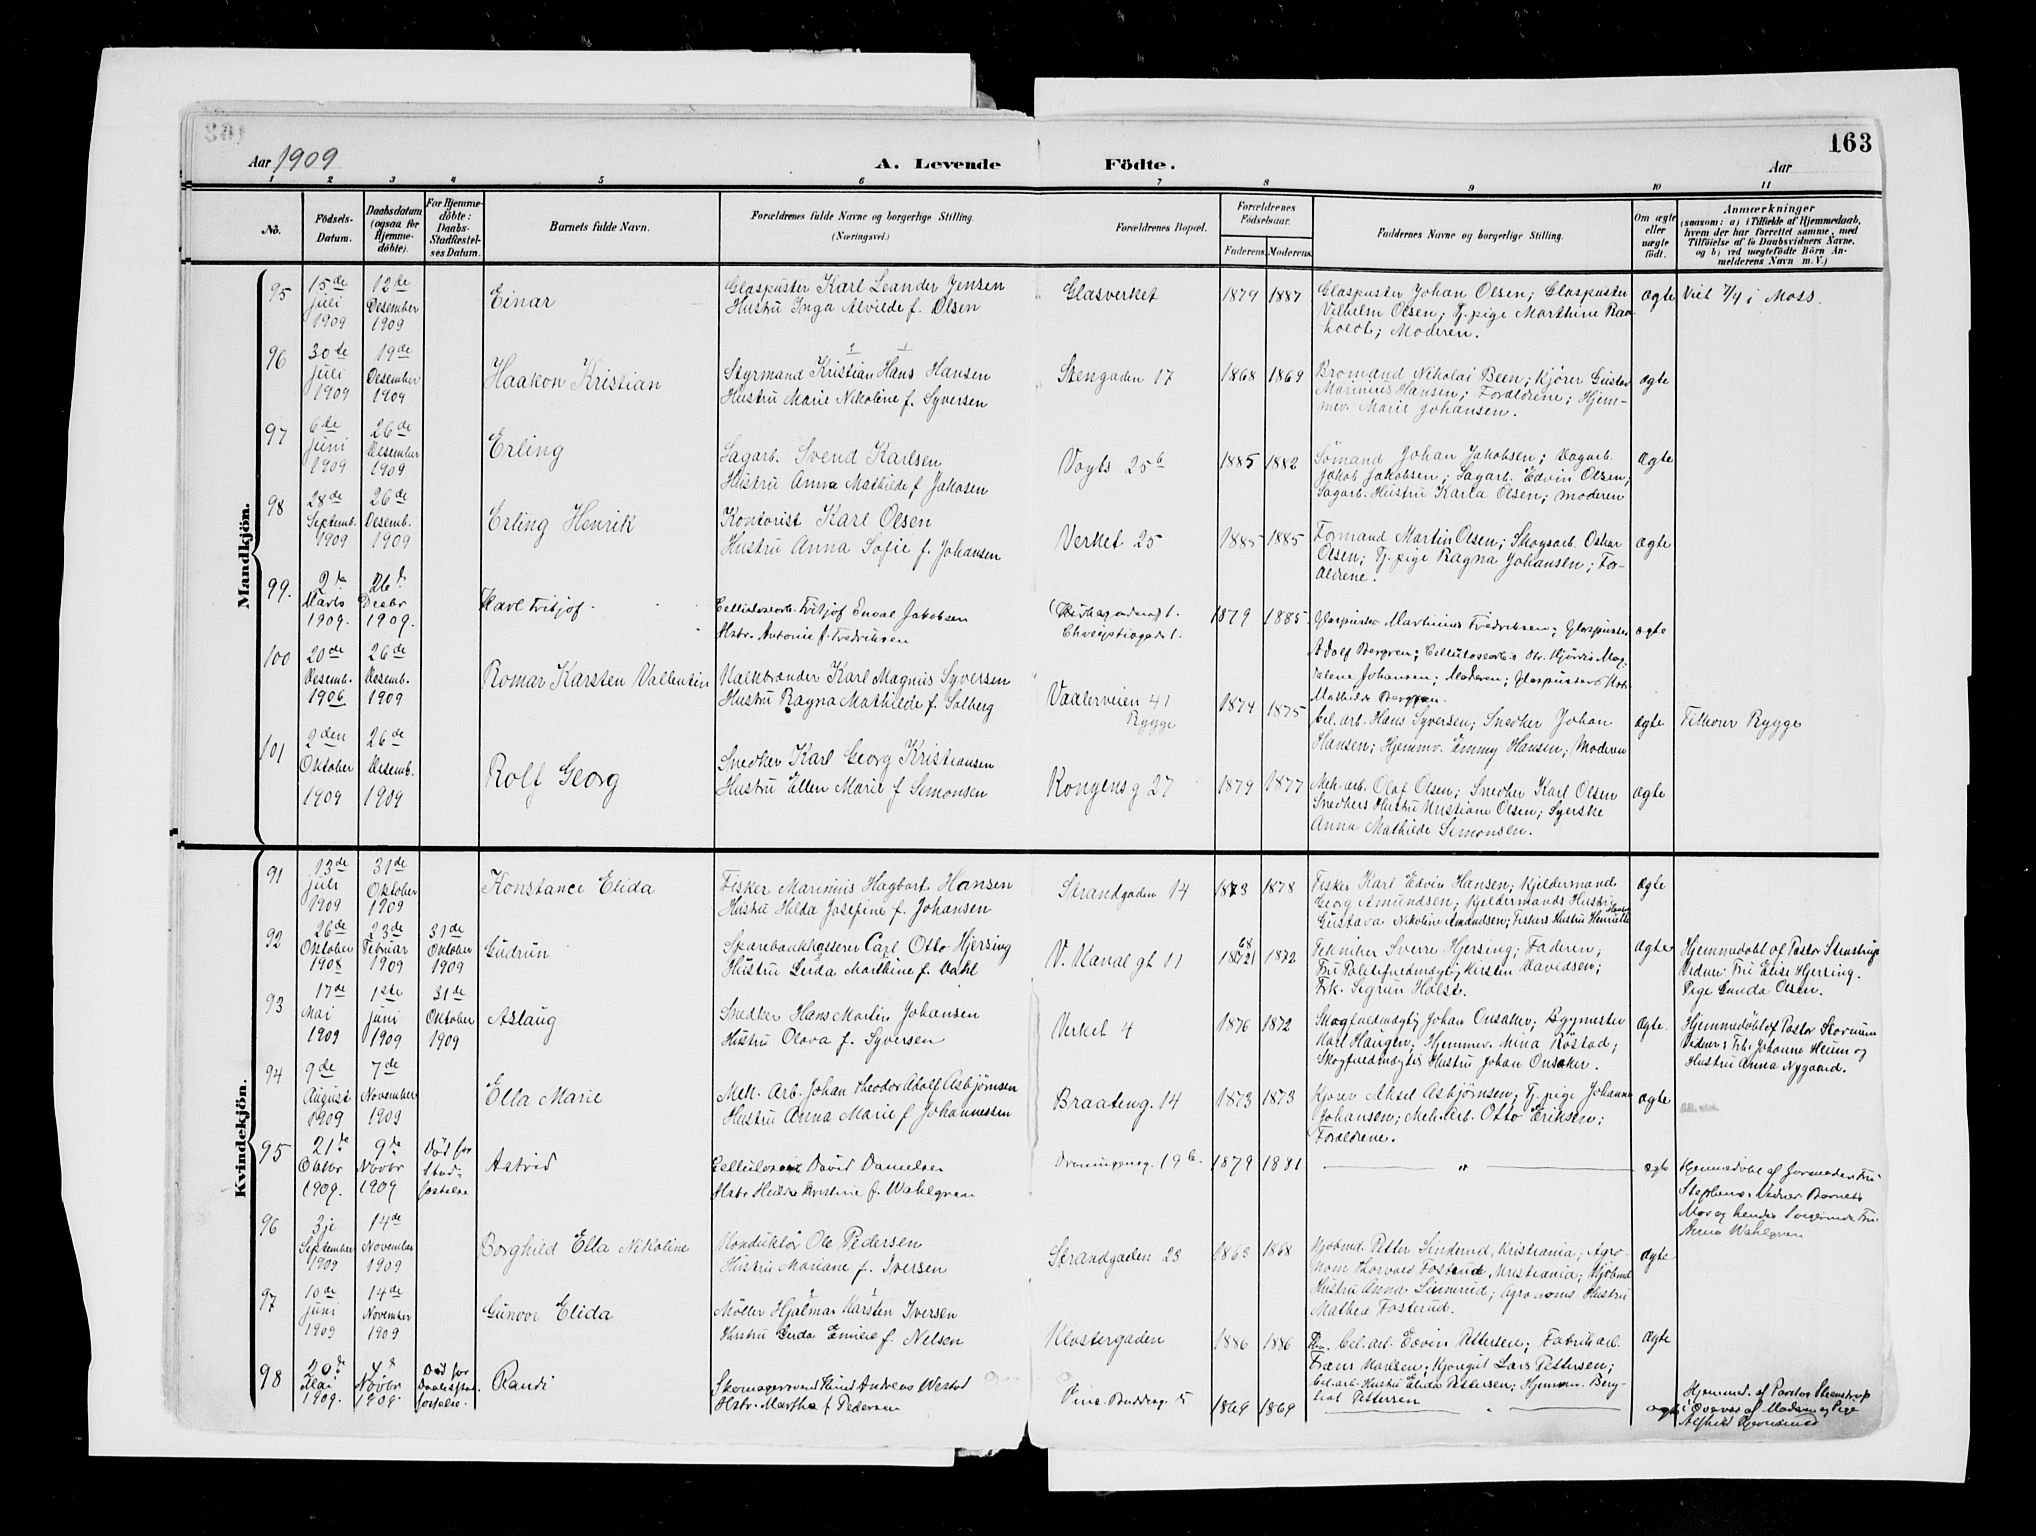 163
Aar 1909
A. Levende Födte.
Aar
1 2 3 4 5 6 7 8 9 10 11
Nô. Födsels-Datum. Daabsdatum (ogsaa for Hjemmedöbte). For Hjemmedöbte: Daabs-Stadfæstelses Datum. Barnets fulde Navn. Forældrenes fulde Navne og borgerlige Stilling. (Næringsvei.) Forældrenes Bopæl. Forældrenes Födselsaar. Faderens. Moderens. Faddernes Navne og borgerlige Stilling. Om ægte eller uægte födt. Anmærkninger
(saasom: a) i Tilfælde af Hjemmedaab, hvem der har forrettet samme, med Tilföielse af to Daabsvidners Navne, og b) ved uægtefödte Börn Anmelderens Navn m. V.)
Mandkjön.
95 15de juli 1909 12te Desember 1909 Einar Glaspuster Karl Leander Jensen
Hustru Inga Alvilde f. Olsen Glasverket 1879 1887 Glaspuster Johan Olsen; Glaspuster
Vilhelm Olsen; Tj.pige Marthine
Moderen. ægte Viet 7/4 i Moss.
96 30te juli 1909 19de Desember 1909 Haakon Kristian Styrmand Kristian Hans Hansen
Hustru Marie Nikoline f. Syversen Stengaden 17 1868 1869 Bromand Nikolai Been; Kjörer Gustav
Marinius Hansen; Forældrene; Hjem-
mev. Marie Johansen. ægte
97 6te juni 1909 26de Desember 1909 Erling Sagarb. Svend Karlsen
Hustru Anna Mathilde f. Jakobsen Vogts 25b 1885 1882 Sömand Johan Jakobsen; Sagarb.
Jakob Jakobsen; Sagarb. Edvin Olsen;
Sagarb. Hustru Karla Olsen; moderen ægte
98 28de Septemb. 1909 26de Desemb. 1909 Erling Henrik Kontorist Karl Olsen
Hustru Anna Sofie f. Johansen Verket 25 1885 1885 Formand Martin Olsen; Skogsarb. Oskar
Olsen; Tj.pige Ragna Johansen; For-
ældrene. ægte
99. Marts 1909. 26 Decbr 1909. Karl Fritjof. Cellulosearb. Fritjof Enval Jakobsen
Hstr. Antonie f. Fredriksen 1. 1879 1885. Glaspuster Marthinus Fredriksen; Glaspuster
Adolf Bergren; Cellulosearb. Hjördis Mag-
dalene Johansen; Moderen; Glaspusters Hstr.
Mathilde ægte
100 20de Desemb. 1906 26de Desemb. 1909 Romar Karsten Vallentin Kalkbrænder Karl Magnus Syversen
Hustru Ragna Mathilde f. Solberg Vaalerveien 41
Rygge 1874 1875 Cel. arb. Hans Syversen; Snedker Johan
Hansen; Hjemmv. Emmy Hansen; Moderen ægte Tilhorer Rygge
101 2den Oktober 1909 26de Desemb. 1909 Rolf Georg Snedker Karl Georg Kristiansen
Hustru Ellen Marie f. Simonsen Kongens g 27 1879 1877 Mek. arb. Olaf Olsen; Snedker Karl Olsen
Snedkers Hustru Kristiane Olsen; Syerske
Anna Mathilde Simonsen. ægte
Kvindekjön.
91 13de juli 1909 31te Oktober 1909 Konstance Elida Fisker Marinius Hagbart Hansen
Hustru Hilda Josefine f. Johansen Strandgaden 14 1873 1878 Fisker Karl Edvin Hansen; Kjeldermand
Georg Amundsen; Kjeldermands Hustru
Gustava Nikoline Amundsen; Fiskers Hustru Henriette Hansen ægte
92 26de Oktober 1908 23de Februar 1909 31de Oktober 1909 Gudrun Sparebankkasserer Carl Otto Hjersing
Hustru Gerda Marthine f. Dahl V. Kanal gt 11 68 1872 1872 Tekniker Sverre Hjersing; Faderen;
Fru Politifuldmægtig Kirsten Davidsen;
Frk. Sigrun Holst. ægte Hjemmedöbt af Pastor Stenstrup
Vidner: Fru Elise Hjersing.
Pige Gunda Olsen.
93 17de Mai 1909 1ste juni 1909 31de Oktober 1909 Aslaug Snedker Hans Martin Johansen
Hustru Olava f. Syversen Verket 4 1876 1872 Skogfuldmægtig Johan Onsaker; Bygmester
Karl Haugen; Hjemmev. Mina Röstad;
Skogfuldmægtigs Hustru Johan Onsaker. ægte. Hjemmedöbt af Pastor
Vidner: Frk. Johanne Heum og
Hustru Anna Nygaard.
94 9de August 1909 7de November 1909 Ella Marie Mek. Arb. Johan Theodor Adolf Asbjörnsen
Hustru Anna Marie f Johannessen Braateng. 14 1873 1873 Kjörer Aksel Asbjörnsen; Tj.pige Johanne
Johansen; Mek. Arb. Otto Eriksen;
Forældrene. ægte
95 21de Oktbr 1909. 9de Novbr 1909 Död för Stad-
fæstelse Astrid David Danielsen
Hstr Hulda Kristine f. Wahlgren Dronningensg. 19b. 1879 1881 — " — ægte Hjemmedöbt af Jormoder Fru
Stephens. Vidner Barnets
Mor og hendes Svigerinde Fru
Anna Wahlgren
96 3je September 1909 14de November 1909 Borghild Ella Nikoline Konduktör Ole Pedersen
Hustru Mariane f. Iversen Strandgaden 23 1863 1868 Kjöbmd. Petter Kristiania; Agro-
nom Thorvald Kristiania; Kjöbmd
Hustru Anna Agronoms Hustru
Mathea Fosterud. ægte
97 10de juni 1909 14de November 1909 Gunvor Elida Möller Hjalmar Karsten Iversen
Hustru Gerda Emilie f. Nelsen Klostergaden 1886 1886 Cel. arb. Edvin Pettersen; Fabrikarb.
Frans Karlsen; Lars Pettersen;
Cel. arb. Hustru Elida Pettersen; Hjemmv. Berg-
liot Pettersen ægte
98 20de Mai 1909. 4de Novbr 1909. Död for Daabsstad-
fæstelse. Randi Skomagersvend Knud Andreas Westad
Hstr. Martha f Pedersen 5 1869 1869 — " — ægte Hjemmed. af Pastor Stenstrup
i Overvær af Madam og Pige
Alfhild